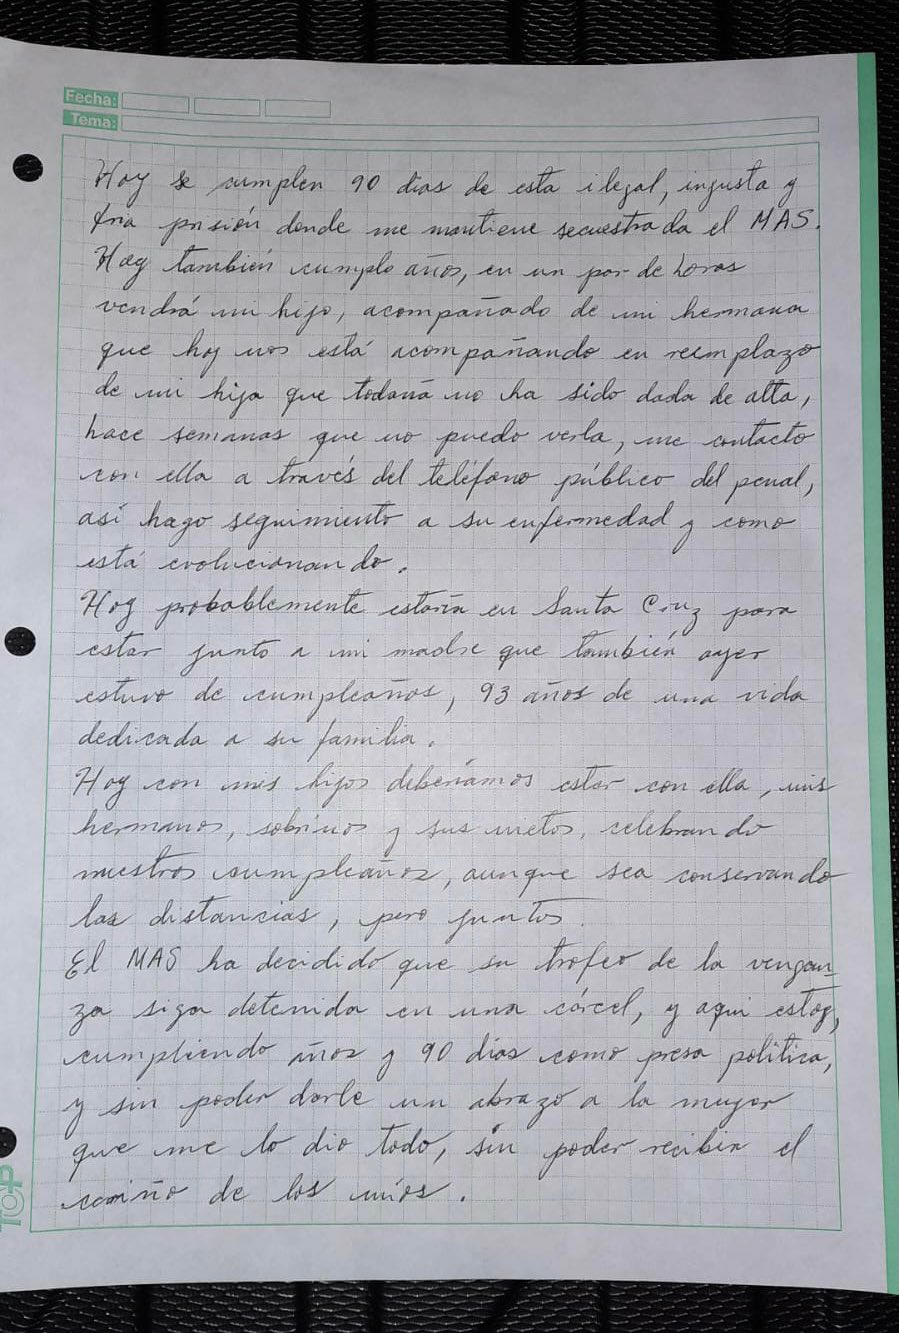 Fecha:
Tema:
Hoy se cumplen 90 días de esta ilegal, injusta y
fría prisión donde me mantiene secuestrada el MAS.
Hoy también cumplo años, en un par de horas
vendrá mi hijo, acompañado de mi hermana
que hoy nos está acompañando en reemplazo
de mi hija que todavía no ha sido dada de alta,
hace semanas que no puedo verla, me contacto
con ella a través del teléfono público del penal,
así hago seguimiento a su enfermedad y como
está evolucionando.
Hoy probablemente estaría en Santa Cruz para
estar junto a mi madre que también ayer
estuvo de cumpleaños, 93 años de una vida
dedicada a su familia.
Hoy con mis hijos deberíamos estar con ella, mis
hermanos, sobrinos y sus nietos, celebrando
nuestros cumpleaños, aunque sea conservando
las distancias, pero juntos.
El MAS ha decidido que su trofeo de la vengan
za siga detenida en una cárcel, y aquí estoy,
cumpliendo años y 90 días como presa política,
y sin poder darle un abrazo a la mujer
que me lo dio todo, sin poder recibir el
cariño de los míos.
TOP